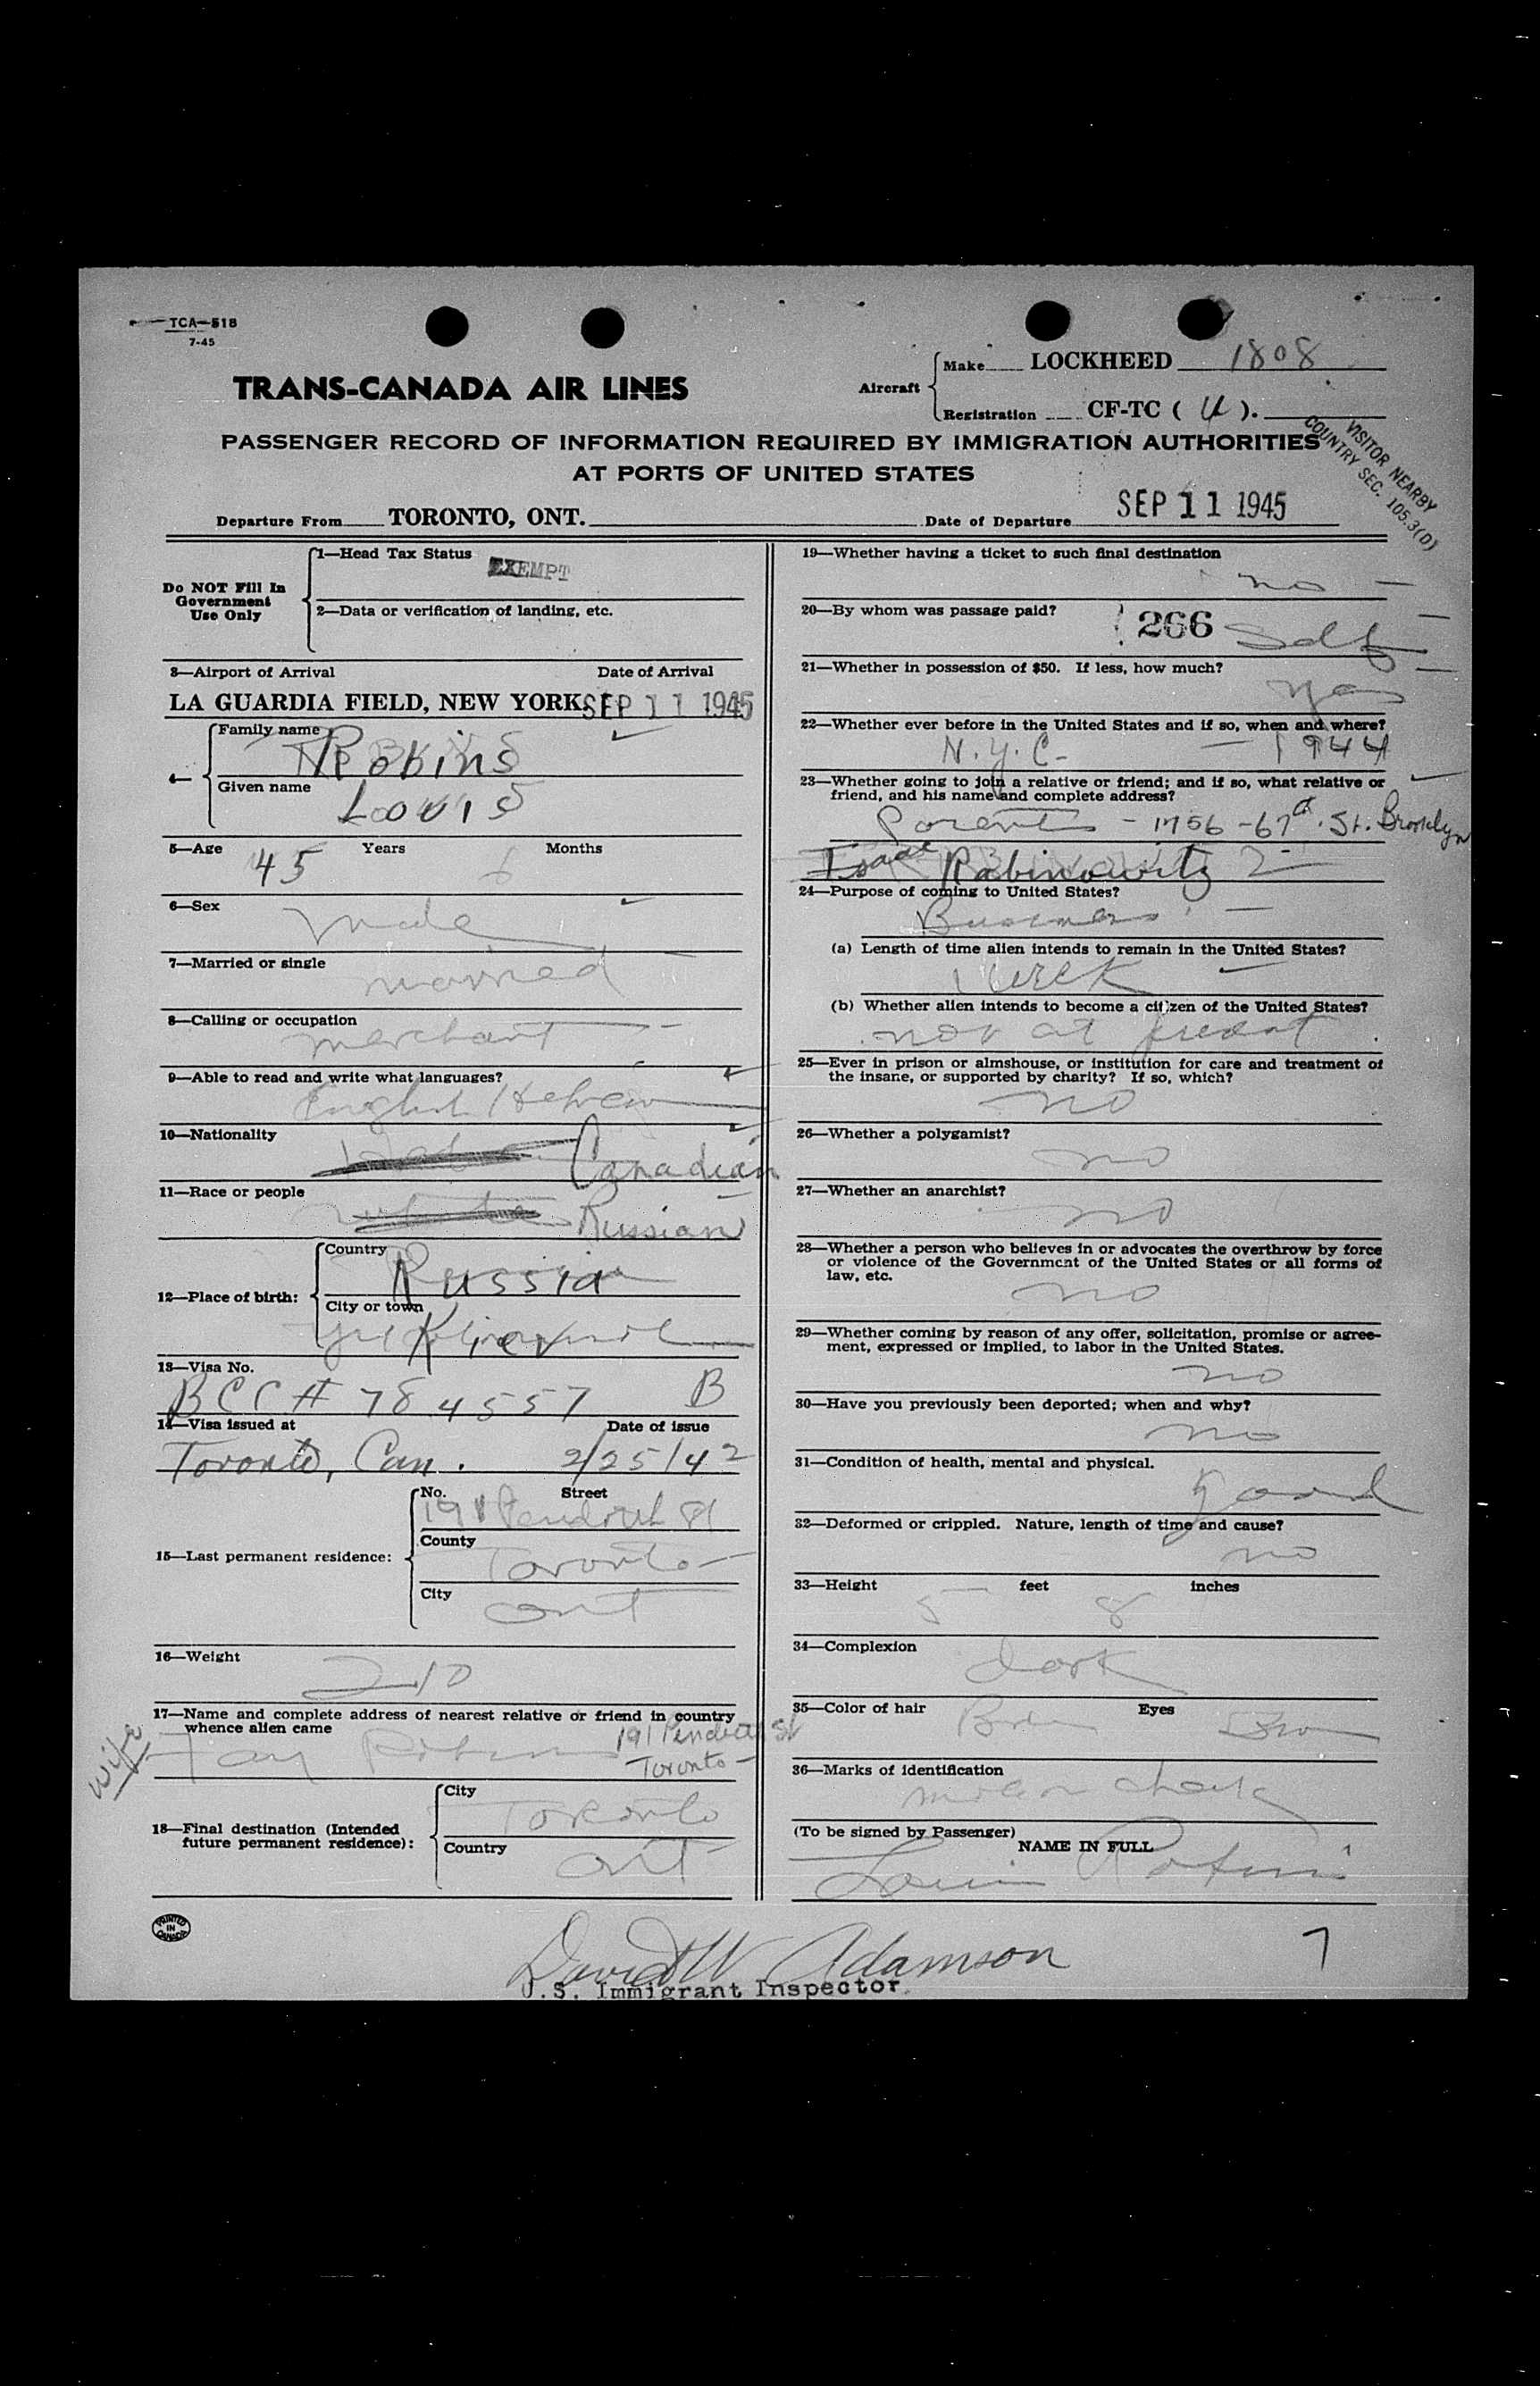 TCA—518
7-45
TRANS-CANADA AIR LINES
Aircraft
Make LOCKHEED 1808
Registration CF-TC ( U ).
PASSENGER RECORD OF INFORMATION REQUIRED BY IMMIGRATION AUTHORITIES
AT PORTS OF UNITED STATES
VISITOR NEARBY
COUNTRY SEC. 105.3(D)
Departure From TORONTO, ONT. Date of Departure SEP 11 1945
Do NOT Fill In
Government
Use Only
1—Head Tax Status
EXEMPT
2—Data or verification of landing, etc.
3—Airport of Arrival Date of Arrival
LA GUARDIA FIELD, NEW YORK SEP 11 1945
4—
Family name
Robins
Given name
Louis
5—Age 45 Years 6 Months
6—Sex
male
7—Married or single
married
8—Calling or occupation
merchant
9—Able to read and write what languages?
English Hebrew
10—Nationality
Canadian
11—Race or people
Russian
12—Place of birth:
Country
Russia
City or town
Kiev
13—Visa No.
BCC # 784557 B
14—Visa issued at Date of issue
Toronto, Can. 2/25/42
15—Last permanent residence:
No. Street
191
County
Toronto
City
Ont
16—Weight
210
17—Name and complete address of nearest relative or friend in country
whence alien came
wife
191 St
Toronto
18—Final destination (Intended
future permanent residence):
City
Toronto
Country
Ont
19—Whether having a ticket to such final destination
no
20—By whom was passage paid?
266 Self
21—Whether in possession of $50. If less, how much?
Yes
22—Whether ever before in the United States and if so, when and where?
N.Y.C. — 1944
23—Whether going to join a relative or friend; and if so, what relative or
friend, and his name and complete address?
Parents - 1756 - 67th St. Brooklyn
Isaac Rabinowitz
24—Purpose of coming to United States?
Business
(a) Length of time alien intends to remain in the United States?
1 week
(b) Whether alien intends to become a citizen of the United States?
not at present
25—Ever in prison or almshouse, or institution for care and treatment of
the insane, or supported by charity? If so, which?
no
26—Whether a polygamist?
no
27—Whether an anarchist?
no
28—Whether a person who believes in or advocates the overthrow by force
or violence of the Government of the United States or all forms of
law, etc.
no
29—Whether coming by reason of any offer, solicitation, promise or agree-
ment, expressed or implied, to labor in the United States.
no
30—Have you previously been deported; when and why?
no
31—Condition of health, mental and physical.
good
32—Deformed or crippled. Nature, length of time and cause?
no
33—Height 5 feet 8 inches
34—Complexion
dark
35—Color of hair Eyes
36—Marks of identification
mole on cheek
(To be signed by Passenger) NAME IN FULL
Louis Robins
PRINTED
IN
CANADA
David W Adamson
U.S. Immigrant Inspector.
7